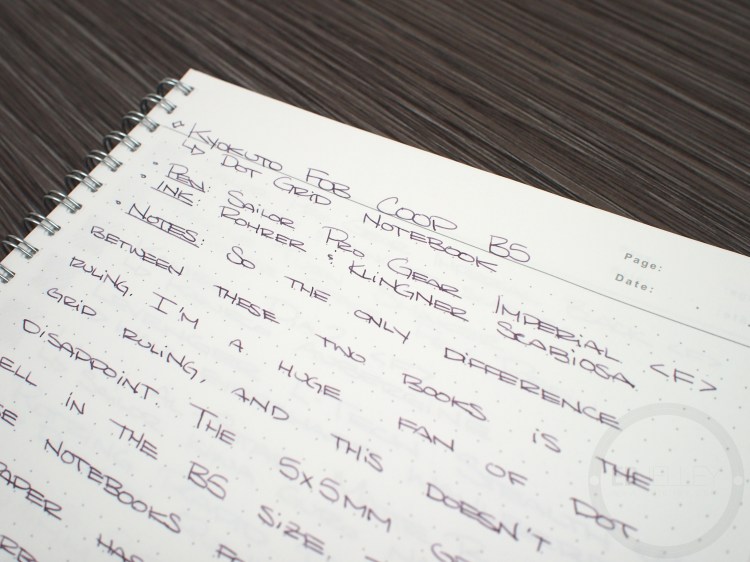 KYOKUTO FOB COOP B5
↳ DOT GRID NOTEBOOK
Page:
Date:
• PEN: SAILOR PRO GEAR IMPERIAL <F>
INK: ROHRER & KLINGNER SCABIOSA
• NOTES: SO THE ONLY DIFFERENCE
BETWEEN THESE TWO BOOKS IS THE
RULING. I'M A HUGE FAN OF DOT
GRID RULING, AND THIS DOESN'T
DISAPPOINT. THE 5x5MM
ELL IN THE B5 SIZE.
NOTEBOOKS
PAPER HAS